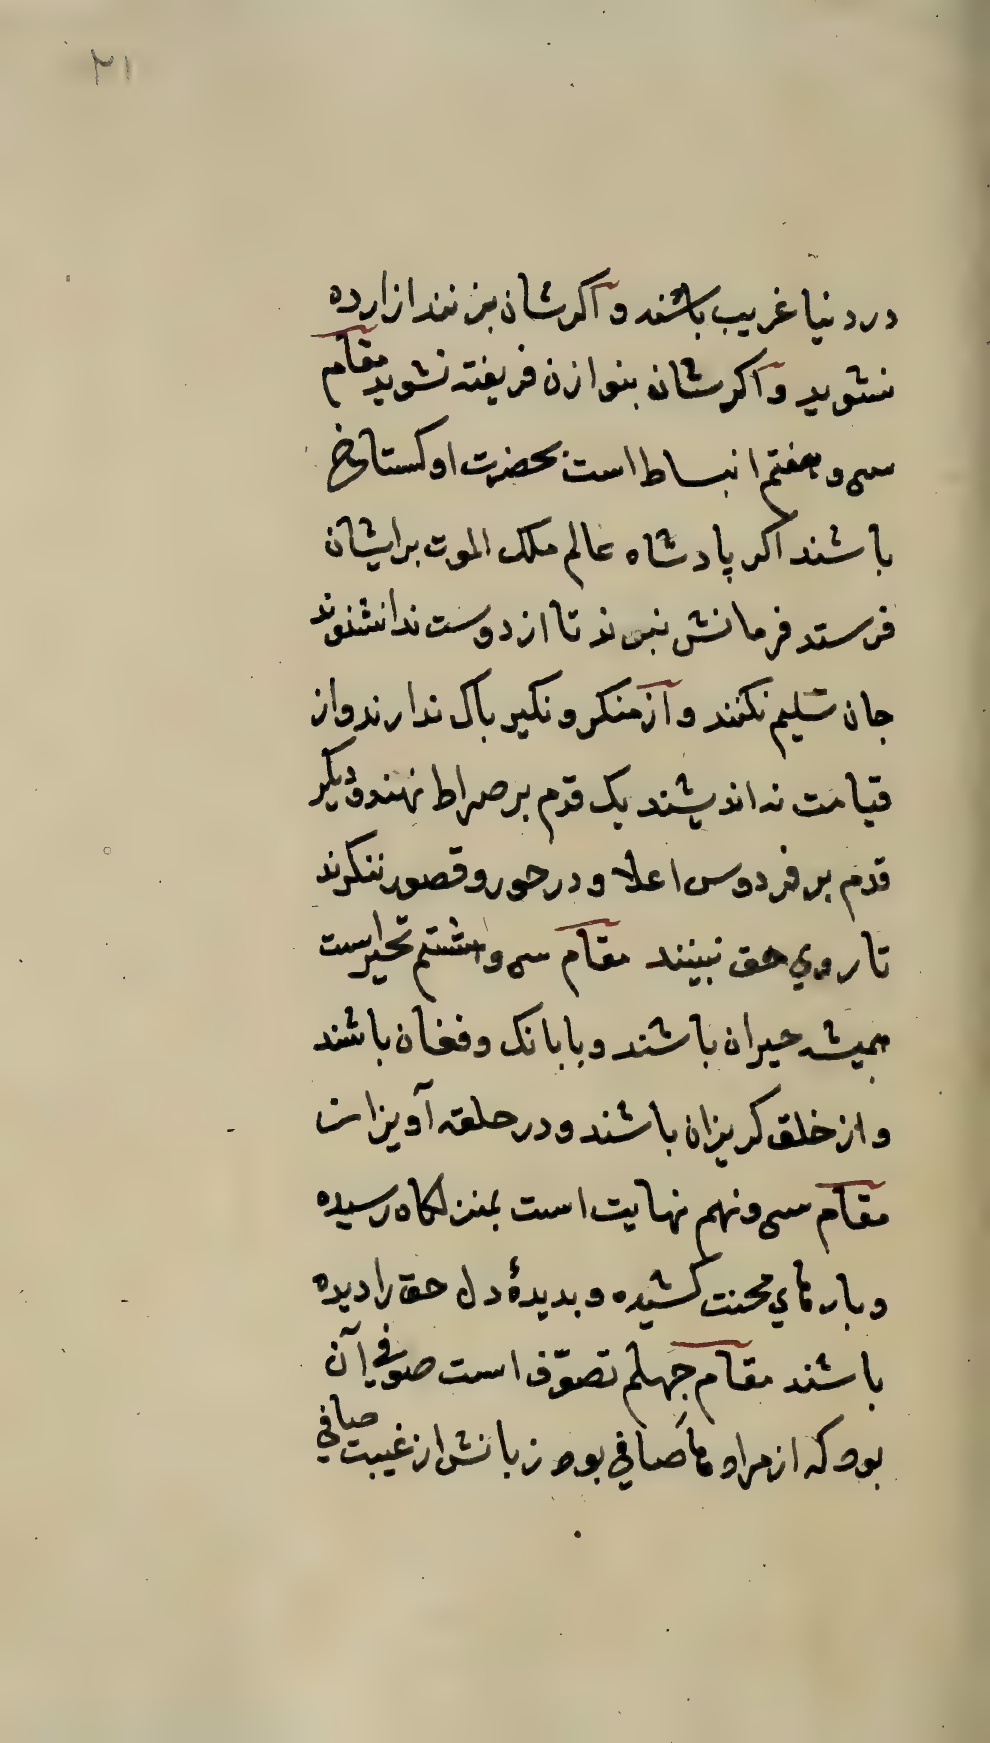 ٢١
در دنیا غریب باشند و اکرشان بزنند ازارده
نشوید و اکرشان بنوازن فریفته نشوید مقام
سی و هفتم انبساط است بحضرت او کستاخ
باشند اکر پادشاه عالم ملک الموت برایشان
فرستد فرمانش نبوند تا از دوست ندانشنوند
جان تسلیم نکنند و از منکر و نکیر باک ندارند و از
قیامت نه اندیشند یک قدم بر صراط نهند و دیکر
قدم بر فردوس اعلا و در حور و قصور ننکرند
تا روي حق نبینند مقام سی و اشتم تحیر است
همیشه حیران باشند و با بانک و فغان باشند
و از خلق کریزان باشند و در حلقه آویزان
مقام سی و نهم نهایت است بمنزلکاه رسیده
و بارهاي محنت کشیده و بدیدهٔ دل حق را دیده
باشند مقام چهلم تصوّف است صوفي آن
بود که از مرادها صافي بود زبانش از غیبت صافي